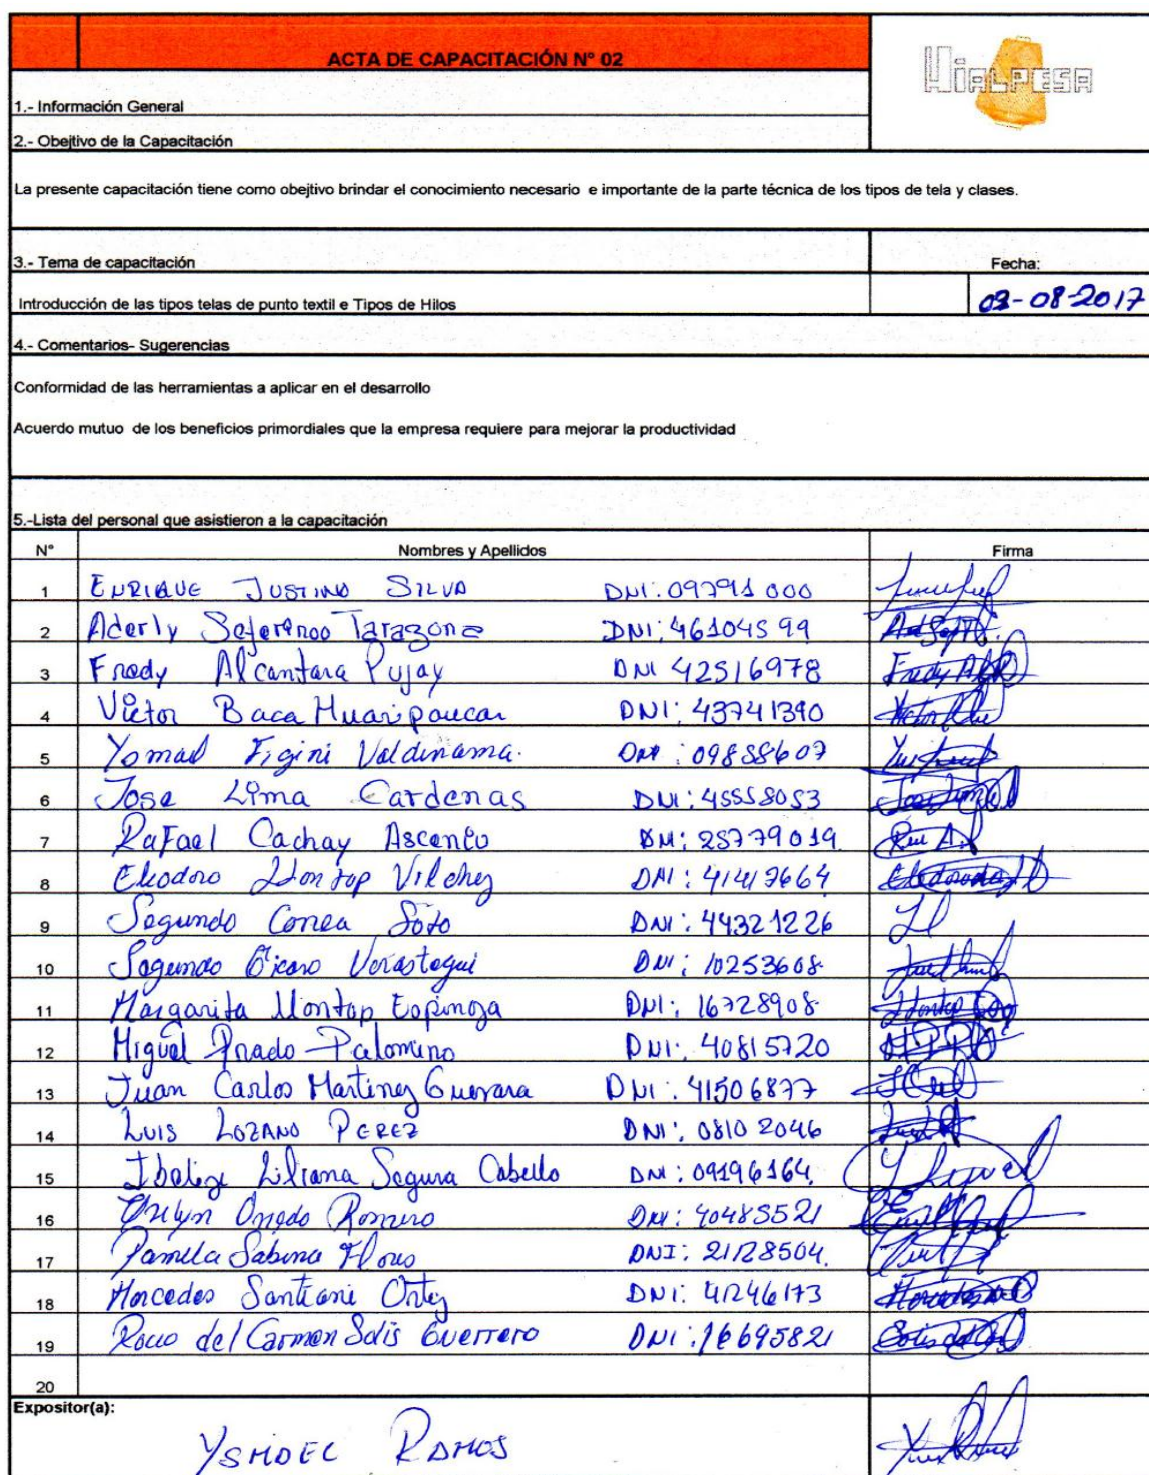 ACTA DE CAPACITACIÓN N° 02
HIALPESA
1.- Información General
2.- Obejtivo de la Capacitación
La presente capacitación tiene como obejtivo brindar el conocimiento necesario e importante de la parte técnica de los tipos de tela y clases.
3.- Tema de capacitación Fecha:
Introducción de las tipos telas de punto textil e Tipos de Hilos 03-08-2017
4.- Comentarios- Sugerencias
Conformidad de las herramientas a aplicar en el desarrollo
Acuerdo mutuo de los beneficios primordiales que la empresa requiere para mejorar la productividad
5.-Lista del personal que asistieron a la capacitación
N° Nombres y Apellidos Firma
1 ENRIQUE JUSTINO SILVA DNI: 09791 000
2 Aderly Seferenoo Tarazona DNI: 46104599
3 Fredy Alcantara Pujay DNI 42516978
4 Victor Baca Huaripaucar DNI: 43741390
5 Yomad Figini Valdinama. DNI: 09858607
6 Jose Lima Cardenas DNI: 45558053
7 Rafael Cachay Ascencio DNI: 25779019
8 Eleodoro Llontop Vilchez DNI: 41417664
9 Segundo Correa Soto DNI: 44321226
10 Segundo Verastegui DNI: 10253608
11 Margarita Llontop Espinoza DNI: 16728908
12 Miguel Prado Palomino DNI: 40815720
13 Juan Carlos Martinez Guevara DNI: 41506877
14 LUIS LOZANO PEREZ DNI: 08102046
15 Liliana Segura Cabello DNI: 09196164
16 Romero DNI: 40485521
17 Pamela Sabina Flores DNI: 21128504
18 Mercedes Santiani Ortiz DNI: 41246173
19 Rocio del Carmen Solis Guerrero DNI: 16695821
20
Expositor(a):
YSMAEL RAMOS